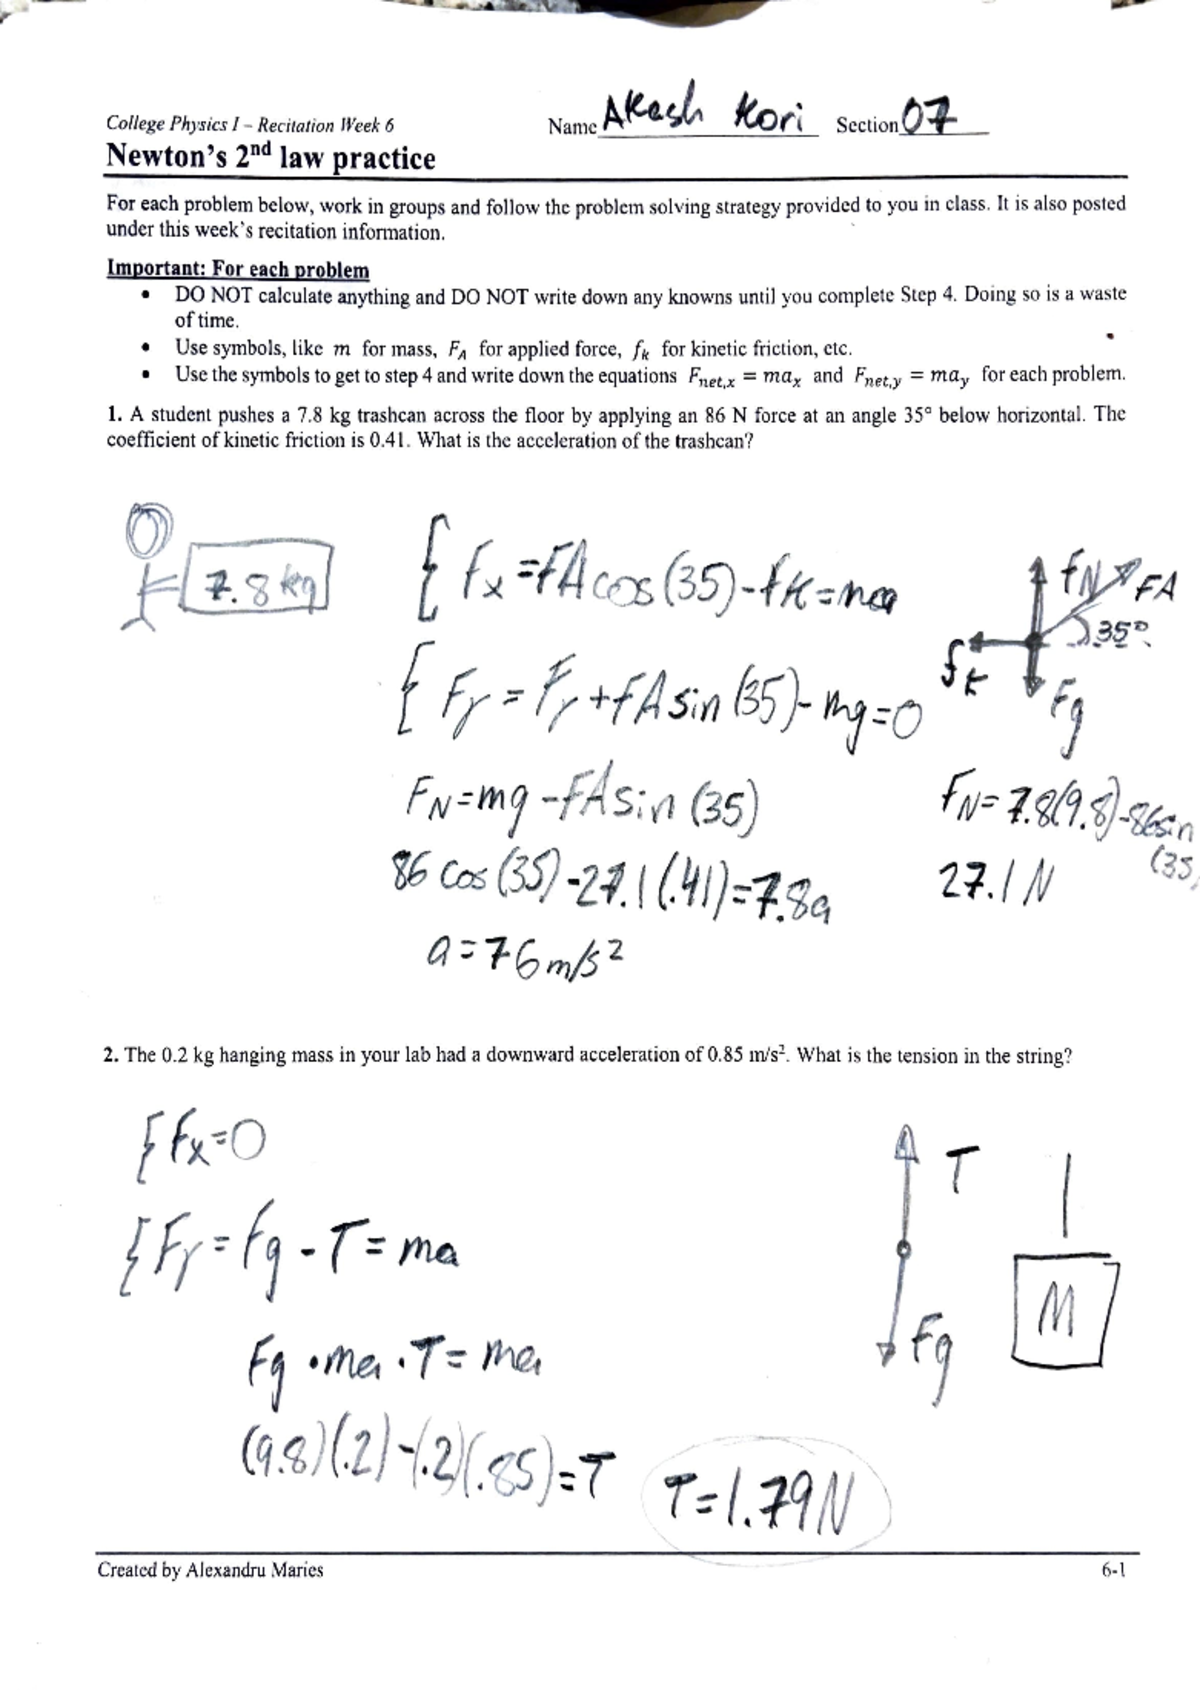 College Physics I – Recitation Week 6 Name Akash Kori Section 07
Newton's 2nd law practice
For each problem below, work in groups and follow the problem solving strategy provided to you in class. It is also posted
under this week's recitation information.
Important: For each problem
• DO NOT calculate anything and DO NOT write down any knowns until you complete Step 4. Doing so is a waste
of time.
• Use symbols, like m for mass, F_A for applied force, f_k for kinetic friction, etc.
• Use the symbols to get to step 4 and write down the equations F_net,x = ma_x and F_net,y = ma_y for each problem.
1. A student pushes a 7.8 kg trashcan across the floor by applying an 86 N force at an angle 35° below horizontal. The
coefficient of kinetic friction is 0.41. What is the acceleration of the trashcan?
7.8 kg
{ Fx = FA cos (35) - fk = ma
FN FA
35°
fk
Fg
{ Fy = Fy + FA sin (35) - mg = 0
FN = mg - FA sin (35)
FN = 7.8(9.8) - 86 sin
(35)
86 cos (35) - 27.1 (.41) = 7.8a
27.1 N
a = 76 m/s²
2. The 0.2 kg hanging mass in your lab had a downward acceleration of 0.85 m/s². What is the tension in the string?
{ Fx = 0
T
{ Fy = Fg - T = ma
M
Fg
Fg · ma · T = ma
(9.8)(.2) - (.2)(.85) = T
T = 1.79 N
Created by Alexandru Maries 6-1